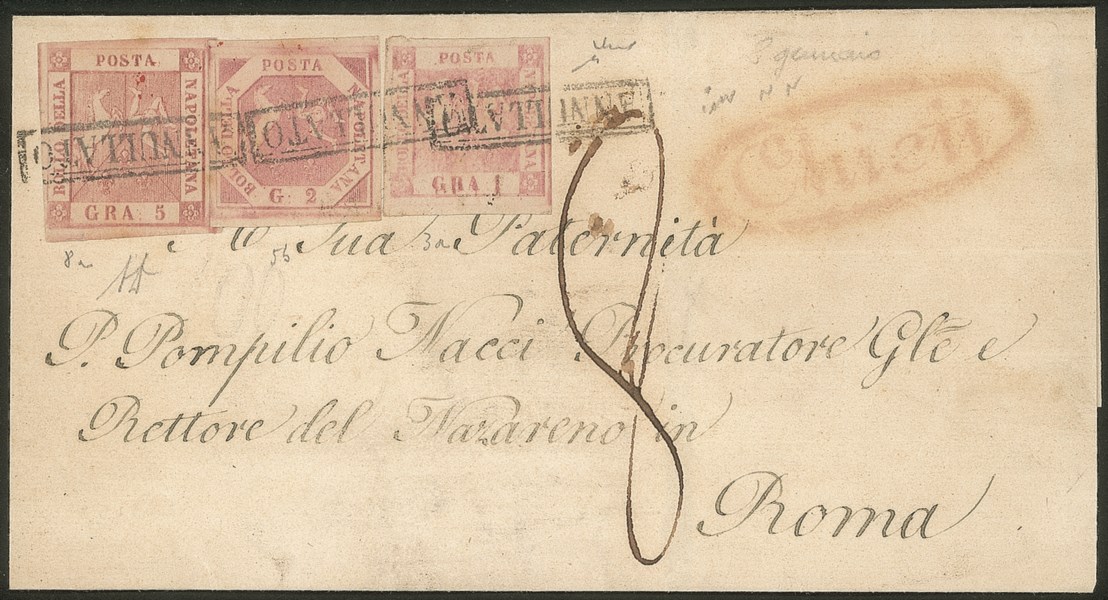 POSTA
BOLLO DELLA
NAPOLETANA
GRA 5
POSTA
BOLLO DELLA
NAPOLITANA
G. 2
POSTA
GRA 1
ANNULLATO
ANNULLATO
ANNULLATO
3 gennaio
A Sua Paternità
8a
5b
3a
8
P. Pompilio Nacci Procuratore Glē e
Rettore del Nazareno in
Roma